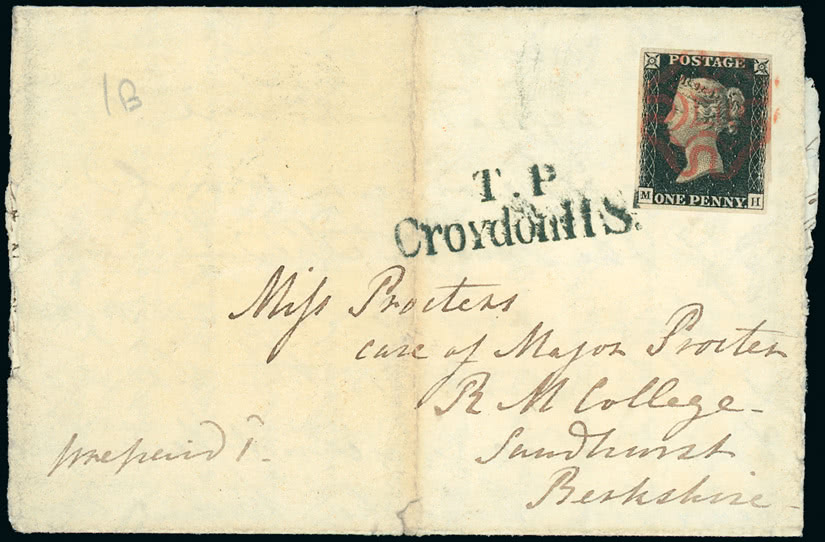 1B
POSTAGE
M H
ONE PENNY
T.P
Croydon H S.
Miss Procters
care of Major Procter
R M College
Sandhurst
Berkshire
prepaid 1